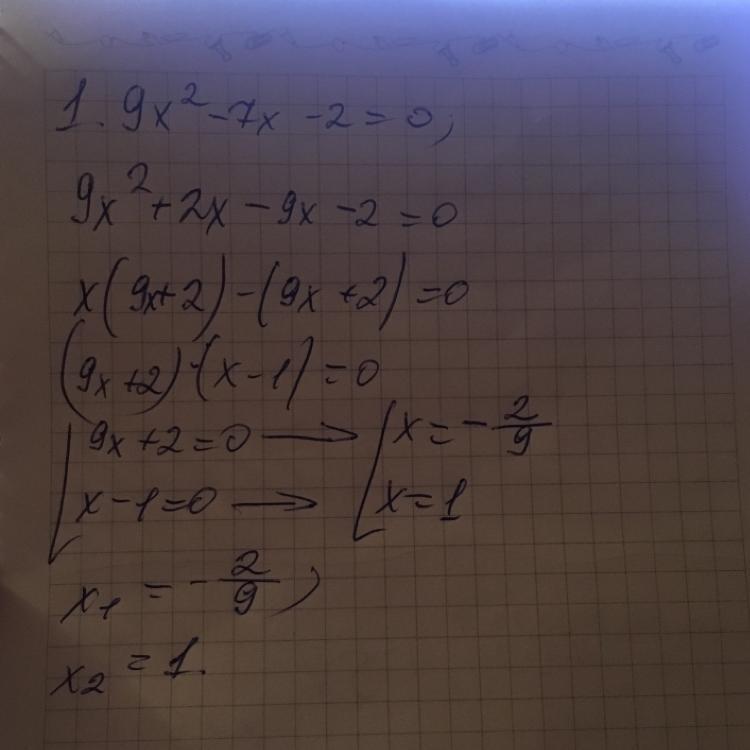 1. 9x² - 7x - 2 = 0;
9x² + 2x - 9x - 2 = 0
x(9x+2) - (9x+2) = 0
(9x+2)·(x-1) = 0
[9x+2=0 → [x = -2/9
x-1=0 → x=1
x₁ = -2/9;
x₂ = 1.